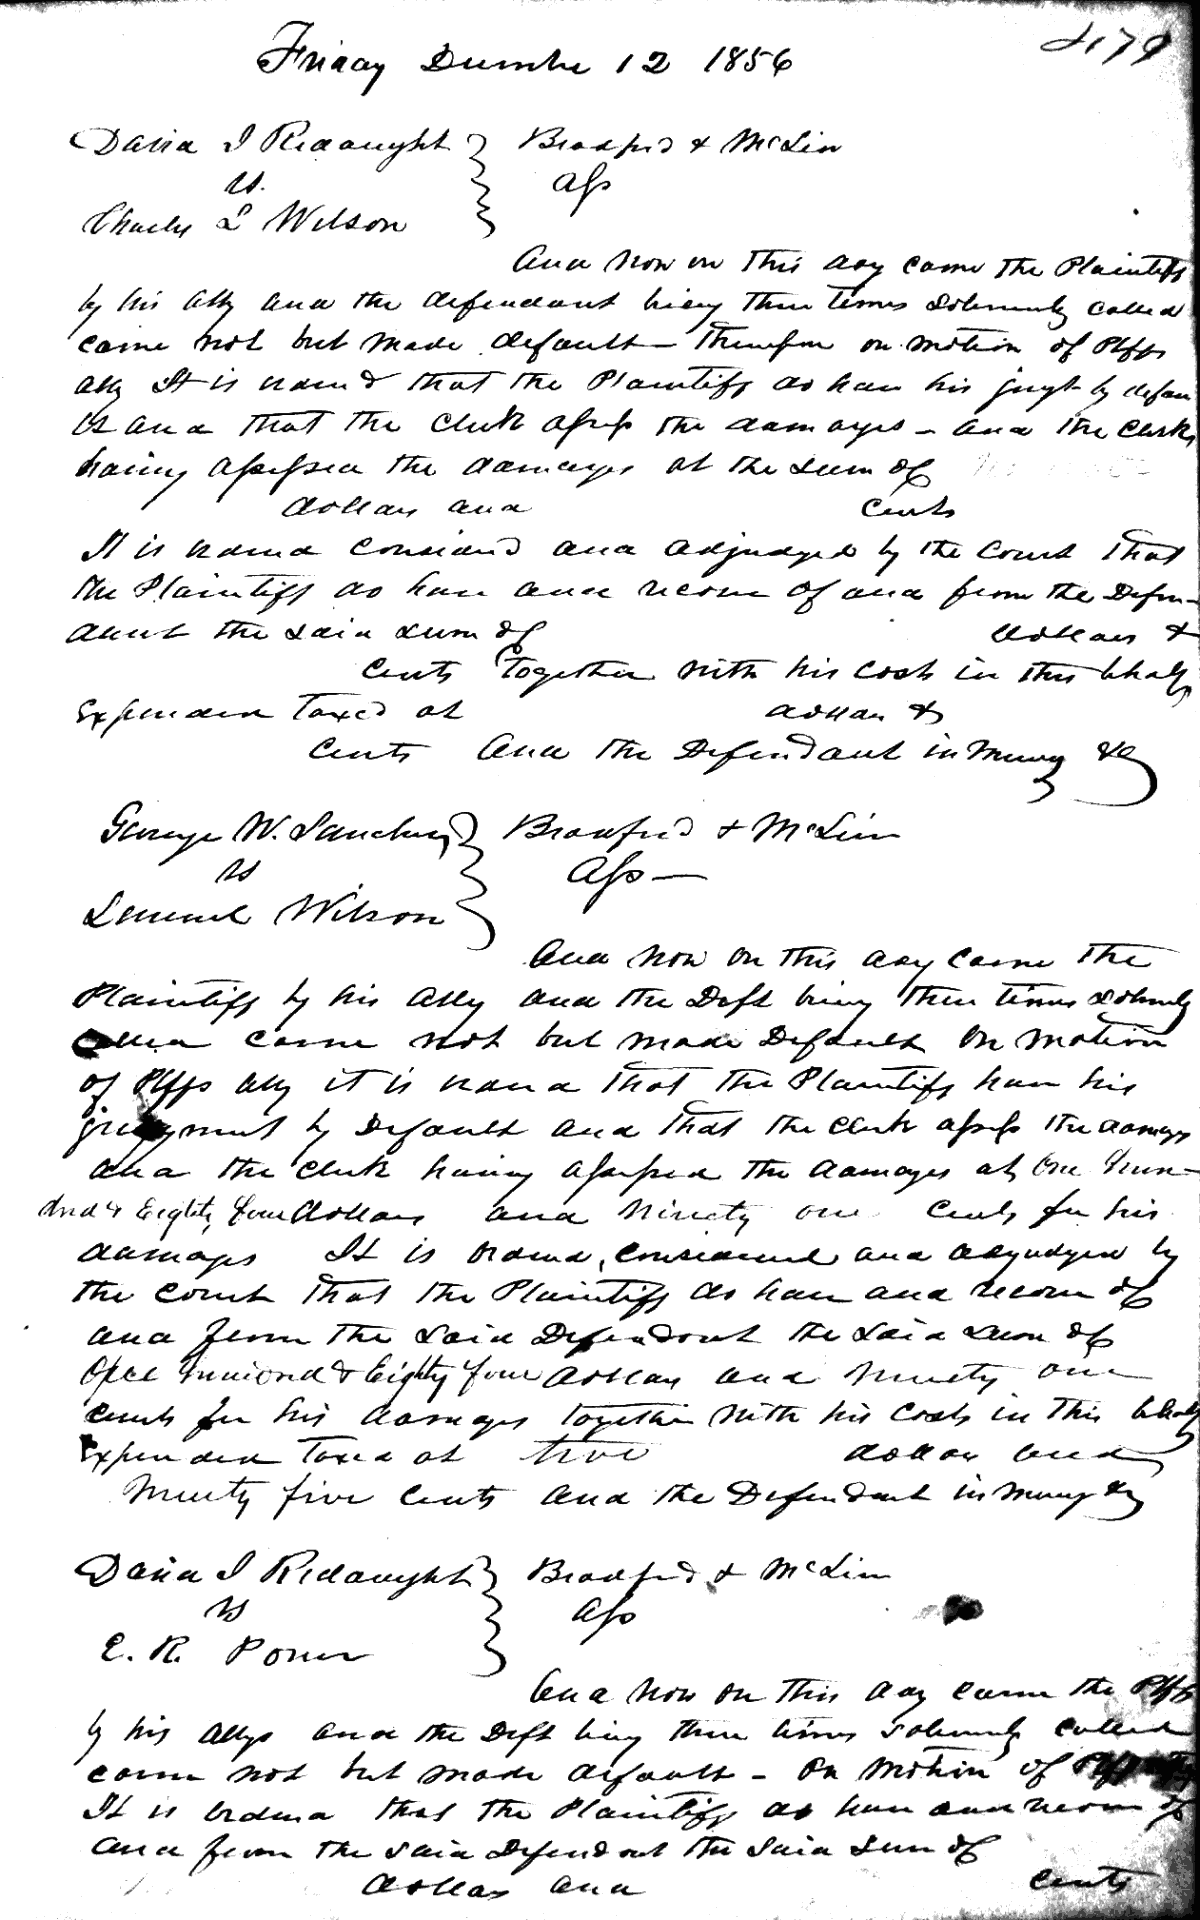 Friday December 12 1856
479
David I Redaught } Bradford & McLin
vs. Ass
Charles L Wilson
And now on this day came the Plaintiff
by his Atty and the defendant being three times solemnly called
came not but made default – Therefore on motion of Plffs
atty It is ordered that the Plaintiff do have his jugt by defau
lt and that the Clerk assess the damages – and the Clerk
having assessed the damages at the sum of
dollars and cents
It is ordered considered and adjudged by the Court that
the Plaintiff do have and recover of and from the Defen-
dant the said sum of dollars &
cents together with his costs in this behalf
Expended Taxed at dollars &
cents And the Defendant in Mercy &c
George W. Sanchez } Bradford & McLin
vs Ass —
Lemuel Wilson
And now on this day came the
Plaintiff by his Atty and the Deft being three times solemnly
called came not but made Default On motion
of Plffs atty it is ordered that the Plaintiff have his
judgment by Default and that the Clerk assess the damages
and the Clerk having assessed the damages at One Hun-
dred & Eighty four dollars and Ninety one Cents for his
damages It is ordered, considered and adjudged by
the Court that the Plaintiff do have and recover of
and from the said Defendant the said sum of
One Hundred & Eighty four dollars and Ninety one
cents for his damages together with his costs in this behalf
Expended Taxed at five dollars and
Ninety five cents and the Defendant in Mercy &c
David I Redaught } Bradford & McLin
vs Ass
E. R. Poner
And now on this day came the Plff
by his Attys and the Deft being three times solemnly called
came not but made default – On motion of Plffs atty
It is ordered that the Plaintiff do have and recover of
and from the said Defendant the said sum of
dollars and cents